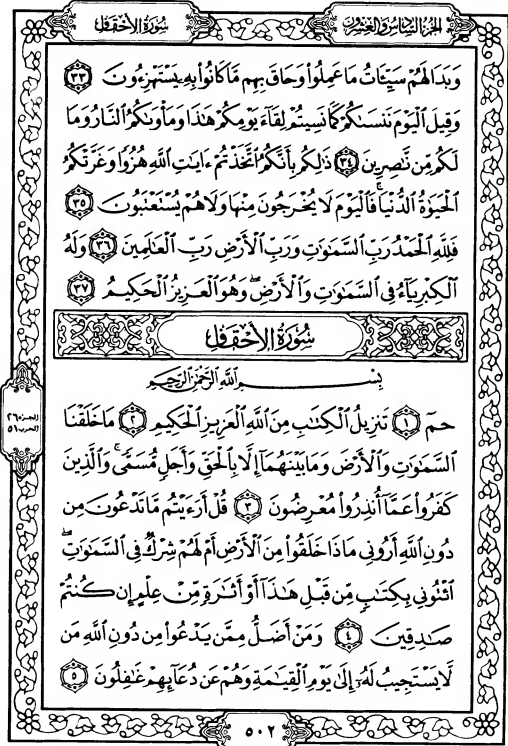 الجزء السادس والعشرون
سورة الأحقاف
وَبَدَا لَهُمْ سَيِّئَاتُ مَا عَمِلُوا وَحَاقَ بِهِم مَّا كَانُوا بِهِ يَسْتَهْزِءُونَ ٣٣
وَقِيلَ الْيَوْمَ نَنسَىٰكُمْ كَمَا نَسِيتُمْ لِقَاءَ يَوْمِكُمْ هَٰذَا وَمَأْوَىٰكُمُ النَّارُ وَمَا
لَكُم مِّن نَّاصِرِينَ ٣٤ ذَٰلِكُم بِأَنَّكُمُ اتَّخَذْتُمْ ءَايَٰتِ اللَّهِ هُزُوًا وَغَرَّتْكُمُ
الْحَيَوٰةُ الدُّنْيَا ۚ فَالْيَوْمَ لَا يُخْرَجُونَ مِنْهَا وَلَا هُمْ يُسْتَعْتَبُونَ ٣٥
فَلِلَّهِ الْحَمْدُ رَبِّ السَّمَٰوَٰتِ وَرَبِّ الْأَرْضِ رَبِّ الْعَالَمِينَ ٣٦ وَلَهُ
الْكِبْرِيَاءُ فِي السَّمَٰوَٰتِ وَالْأَرْضِ ۖ وَهُوَ الْعَزِيزُ الْحَكِيمُ ٣٧
سُورَةُ الأَحْقَافِ
بِسْمِ اللَّهِ الرَّحْمَٰنِ الرَّحِيمِ
حمٓ ١ تَنزِيلُ الْكِتَٰبِ مِنَ اللَّهِ الْعَزِيزِ الْحَكِيمِ ٢ مَا خَلَقْنَا
السَّمَٰوَٰتِ وَالْأَرْضَ وَمَا بَيْنَهُمَا إِلَّا بِالْحَقِّ وَأَجَلٍ مُّسَمًّى ۚ وَالَّذِينَ
كَفَرُوا عَمَّا أُنذِرُوا مُعْرِضُونَ ٣ قُلْ أَرَءَيْتُم مَّا تَدْعُونَ مِن
دُونِ اللَّهِ أَرُونِي مَاذَا خَلَقُوا مِنَ الْأَرْضِ أَمْ لَهُمْ شِرْكٌ فِي السَّمَٰوَٰتِ ۖ
ائْتُونِي بِكِتَٰبٍ مِّن قَبْلِ هَٰذَا أَوْ أَثَٰرَةٍ مِّنْ عِلْمٍ إِن كُنتُمْ
صَادِقِينَ ٤ وَمَنْ أَضَلُّ مِمَّن يَدْعُوا مِن دُونِ اللَّهِ مَن
لَّا يَسْتَجِيبُ لَهُ إِلَىٰ يَوْمِ الْقِيَٰمَةِ وَهُمْ عَن دُعَائِهِمْ غَٰفِلُونَ ٥
الجزء ٢٦
الحزب ٥١
٥٠٢